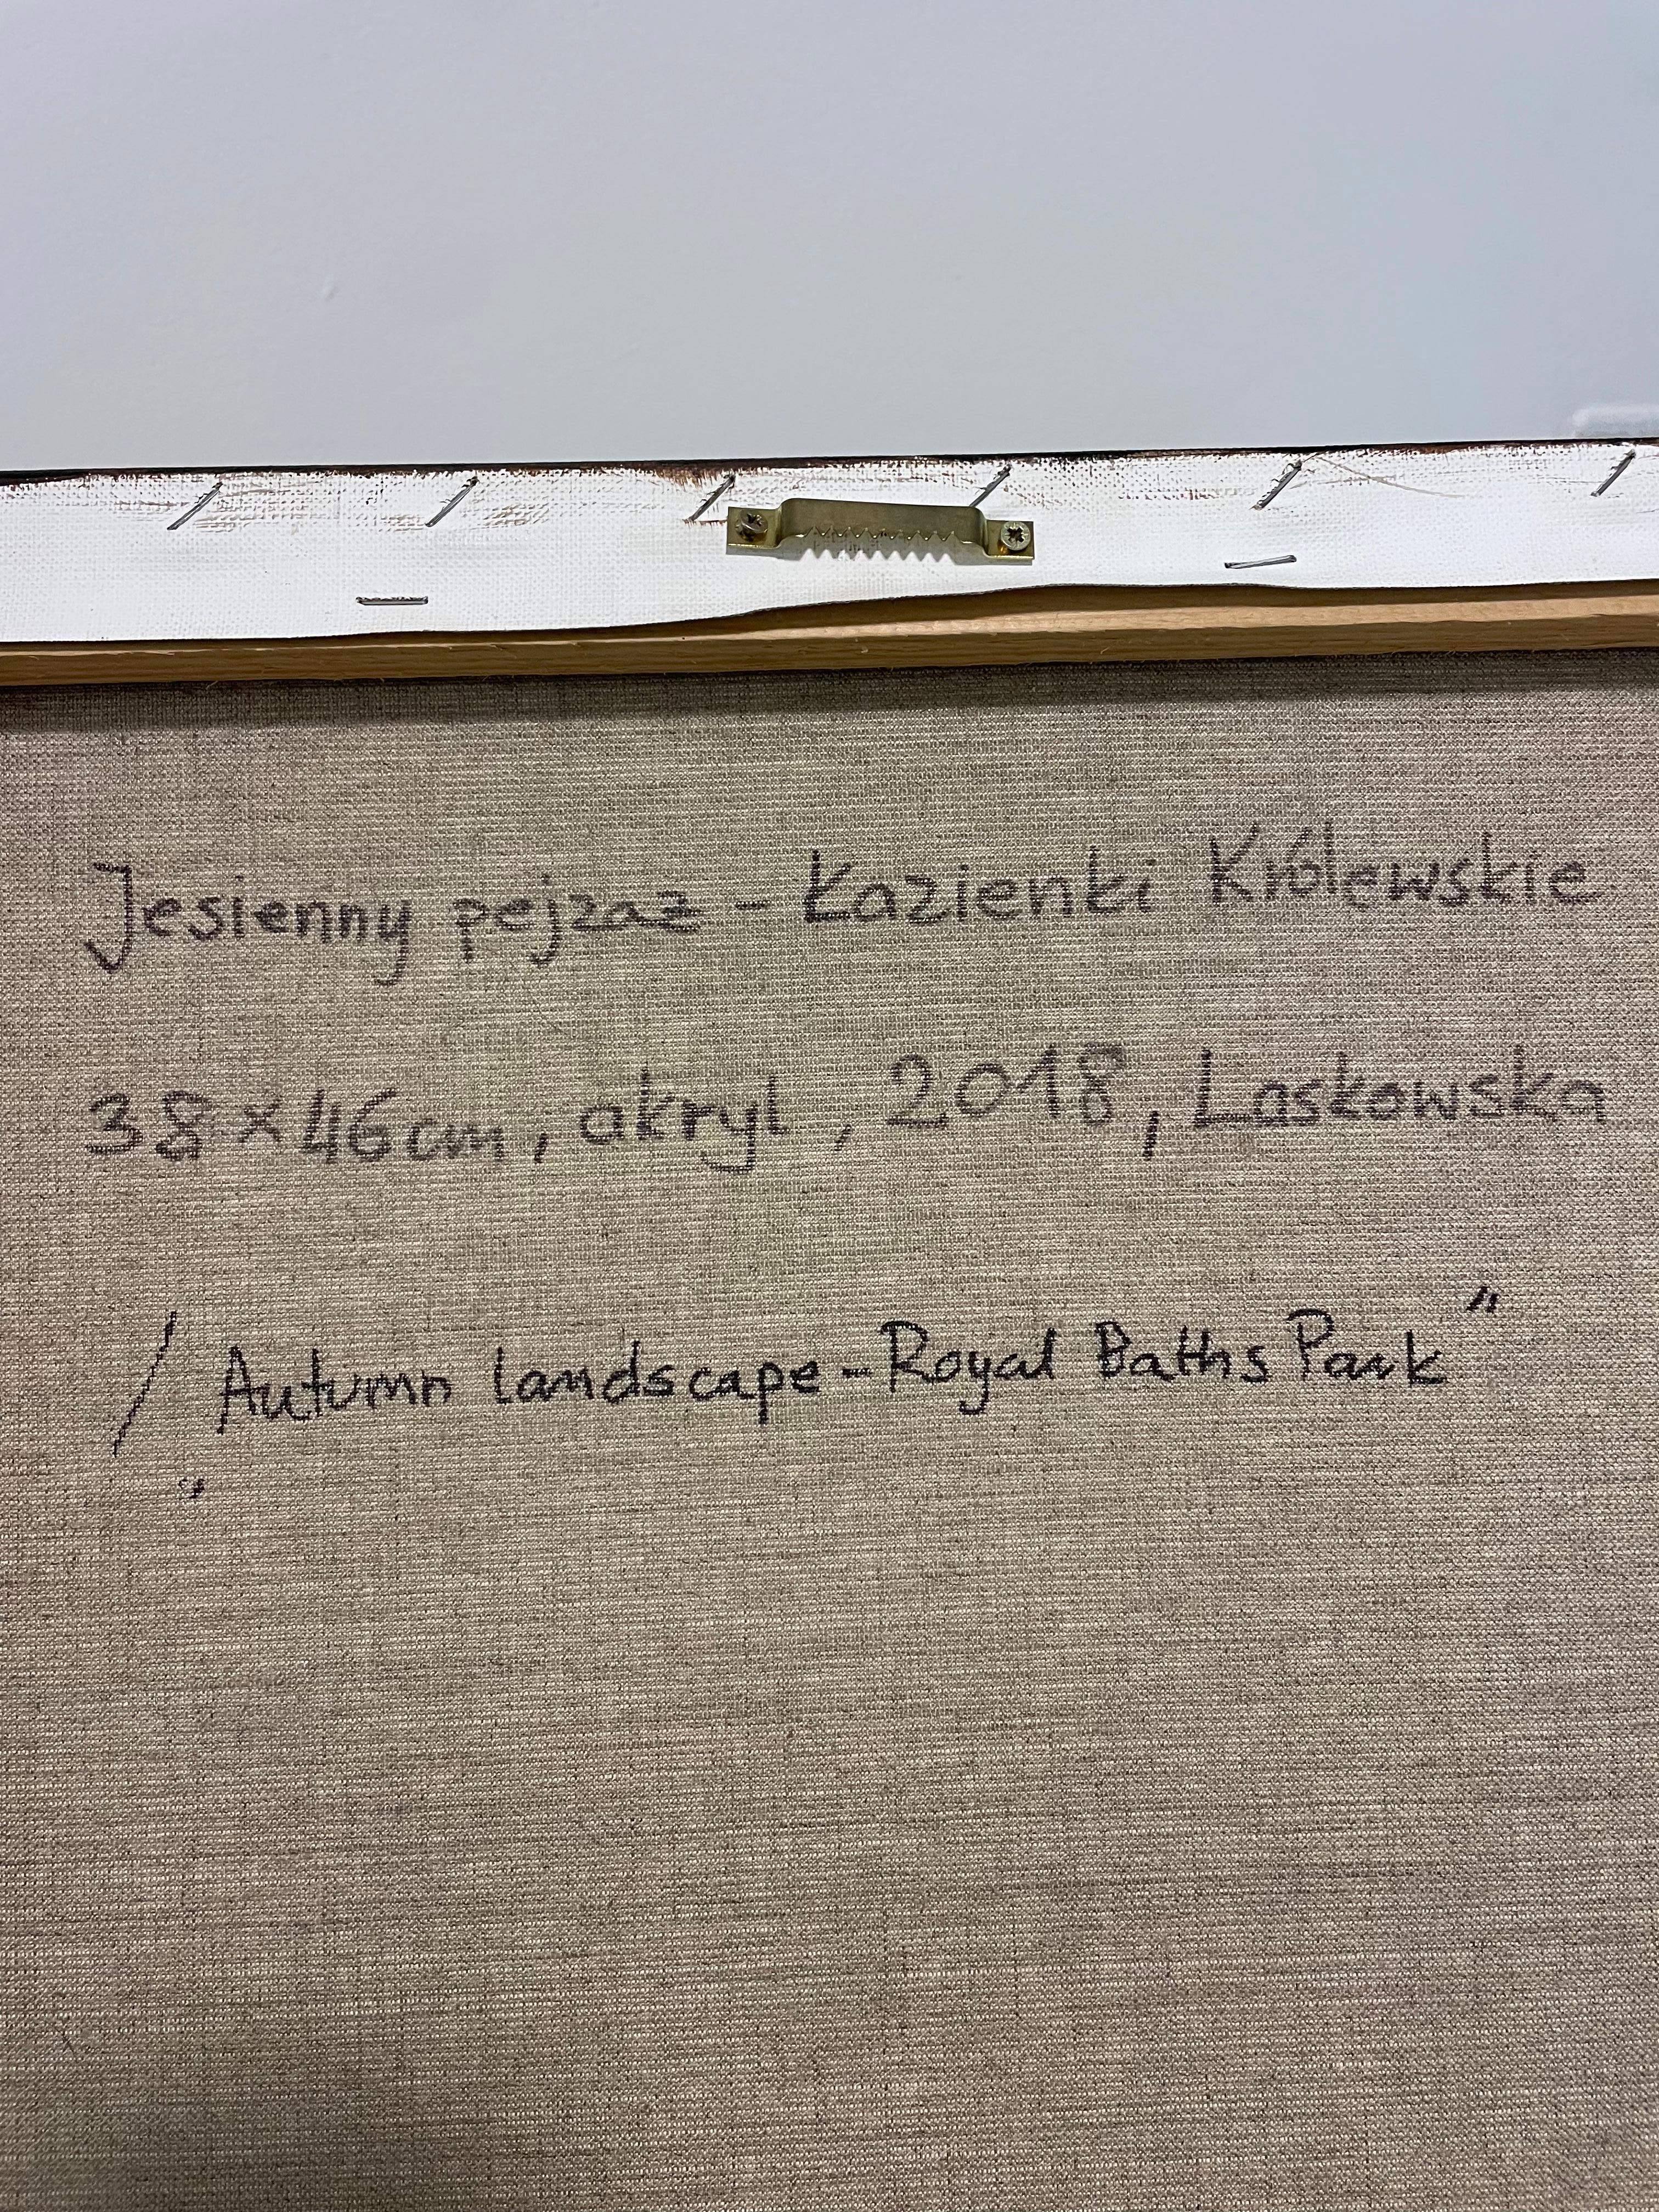 Jesienny pejzaż - Łazienki Królewskie
38×46cm, akryl, 2018, Laskowska
/ „Autumn landscape - Royal Baths Park”